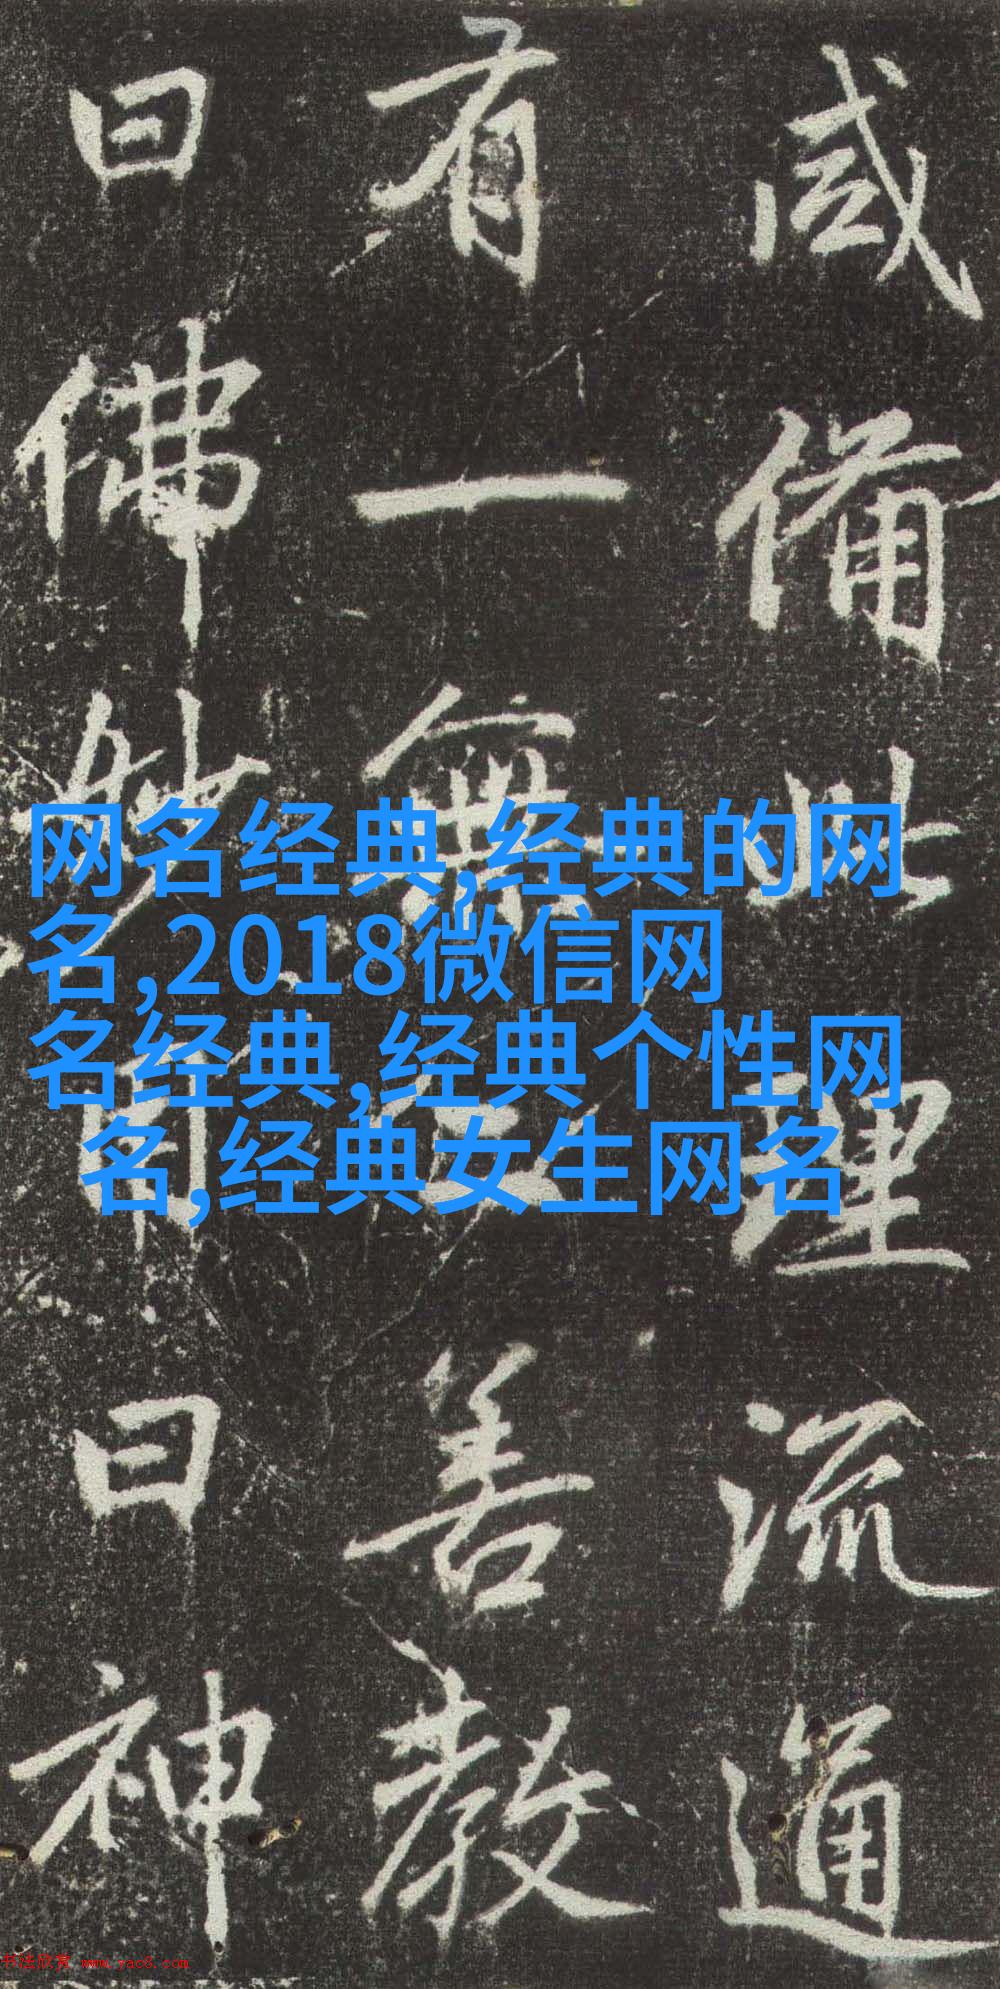 咸備此理流通
有一無善教
曰佛妙曰神
网名经典,经典的网
名,2018微信网
名经典,经典个性网
名,经典女生网名
书法欣赏 www.yac8.com